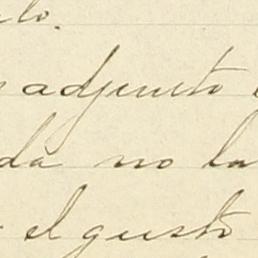 lo.
adjunto
da no la
el gusto